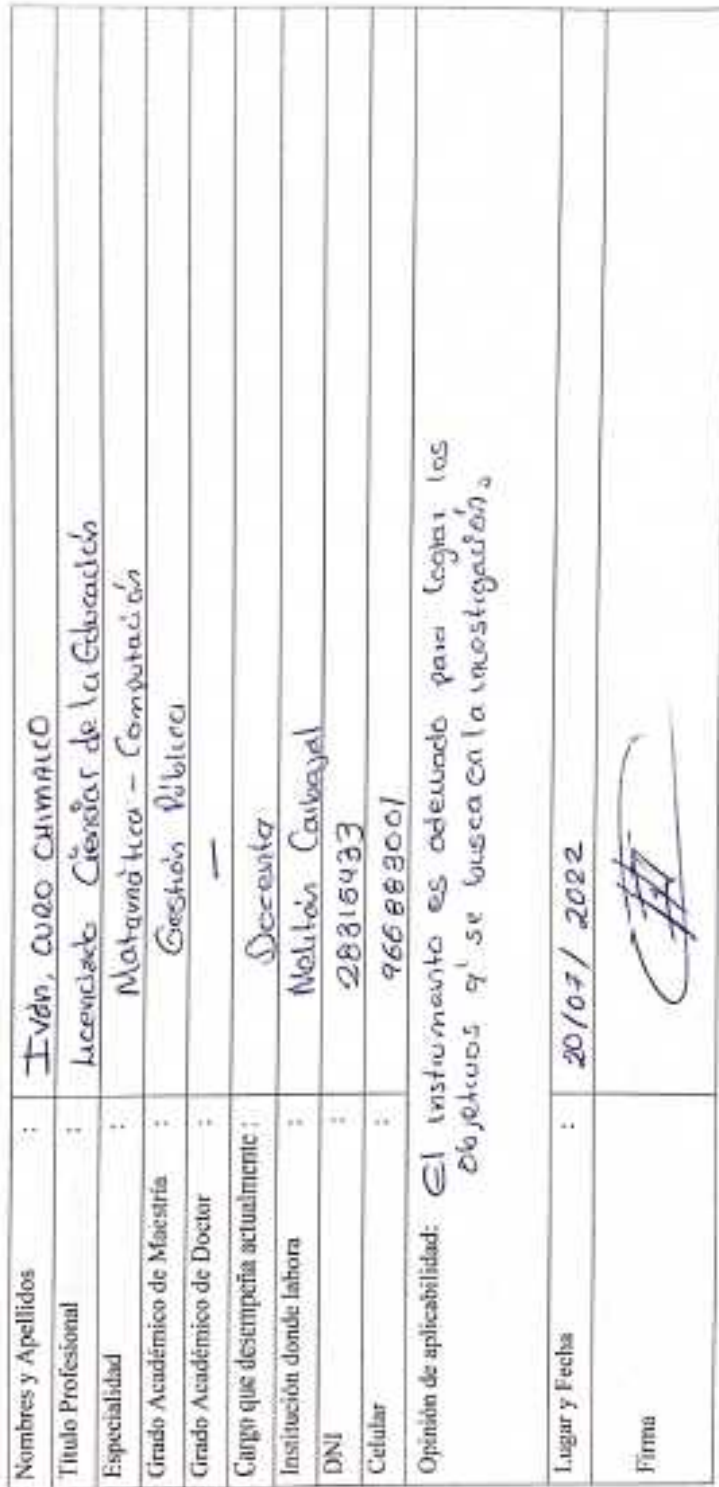 Nombres y Apellidos : Iván, CURO CHIMAICO
Título Profesional : Licenciado Ciencias de la Educación
Especialidad : Matemática - Computación
Grado Académico de Maestría : Gestión Pública
Grado Académico de Doctor : —
Cargo que desempeña actualmente : Docente
Institución donde labora : Melitón Carbajal
DNI : 28316433
Celular : 966883001
Opinión de aplicabilidad: El instrumento es adecuado para lograr los
objetivos q' se busca en la investigación.
Lugar y Fecha : 20/07/2022
Firma